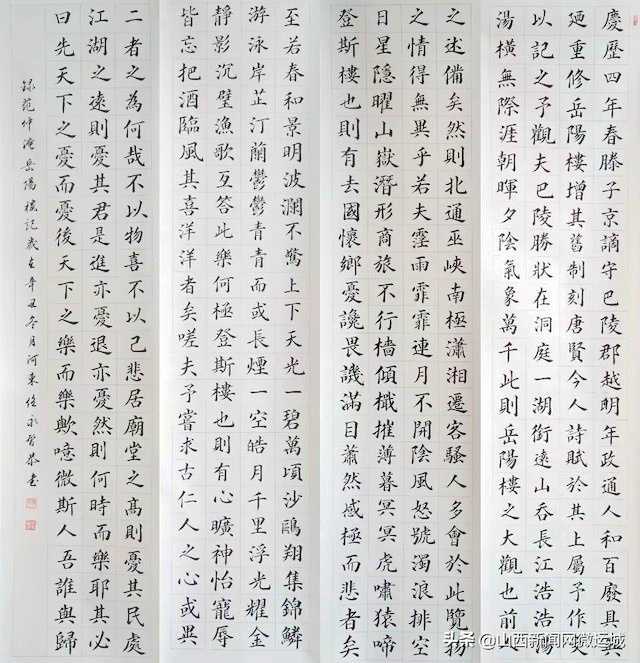 慶歷四年春滕子京謫守巴陵郡越明年政通人和百廢具興
廼重修岳陽樓增其舊制刻唐賢今人詩賦於其上屬予作文
以記之予觀夫巴陵勝狀在洞庭一湖銜遠山吞長江浩浩湯
湯橫無際涯朝暉夕陰氣象萬千此則岳陽樓之大觀也前人
之述備矣然則北通巫峽南極瀟湘遷客騷人多會於此覽物
之情得無異乎若夫霪雨霏霏連月不開陰風怒號濁浪排空
日星隱曜山嶽潛形商旅不行檣傾檝摧薄暮冥冥虎嘯猿啼
登斯樓也則有去國懷鄉憂讒畏譏滿目蕭然感極而悲者矣
至若春和景明波瀾不驚上下天光一碧萬頃沙鷗翔集錦鱗
游泳岸芷汀蘭鬱鬱青青而或長煙一空皓月千里浮光耀金
靜影沉璧漁歌互答此樂何極登斯樓也則有心曠神怡寵辱
皆忘把酒臨風其喜洋洋者矣嗟夫予嘗求古仁人之心或異
二者之為何哉不以物喜不以己悲居廟堂之高則憂其民處
江湖之遠則憂其君是進亦憂退亦憂然則何時而樂耶其必
曰先天下之憂而憂後天下之樂而樂歟噫微斯人吾誰與歸
錄范仲淹岳陽樓記歲在辛丑冬月河東永恭書
头条 @山西新闻网微运城